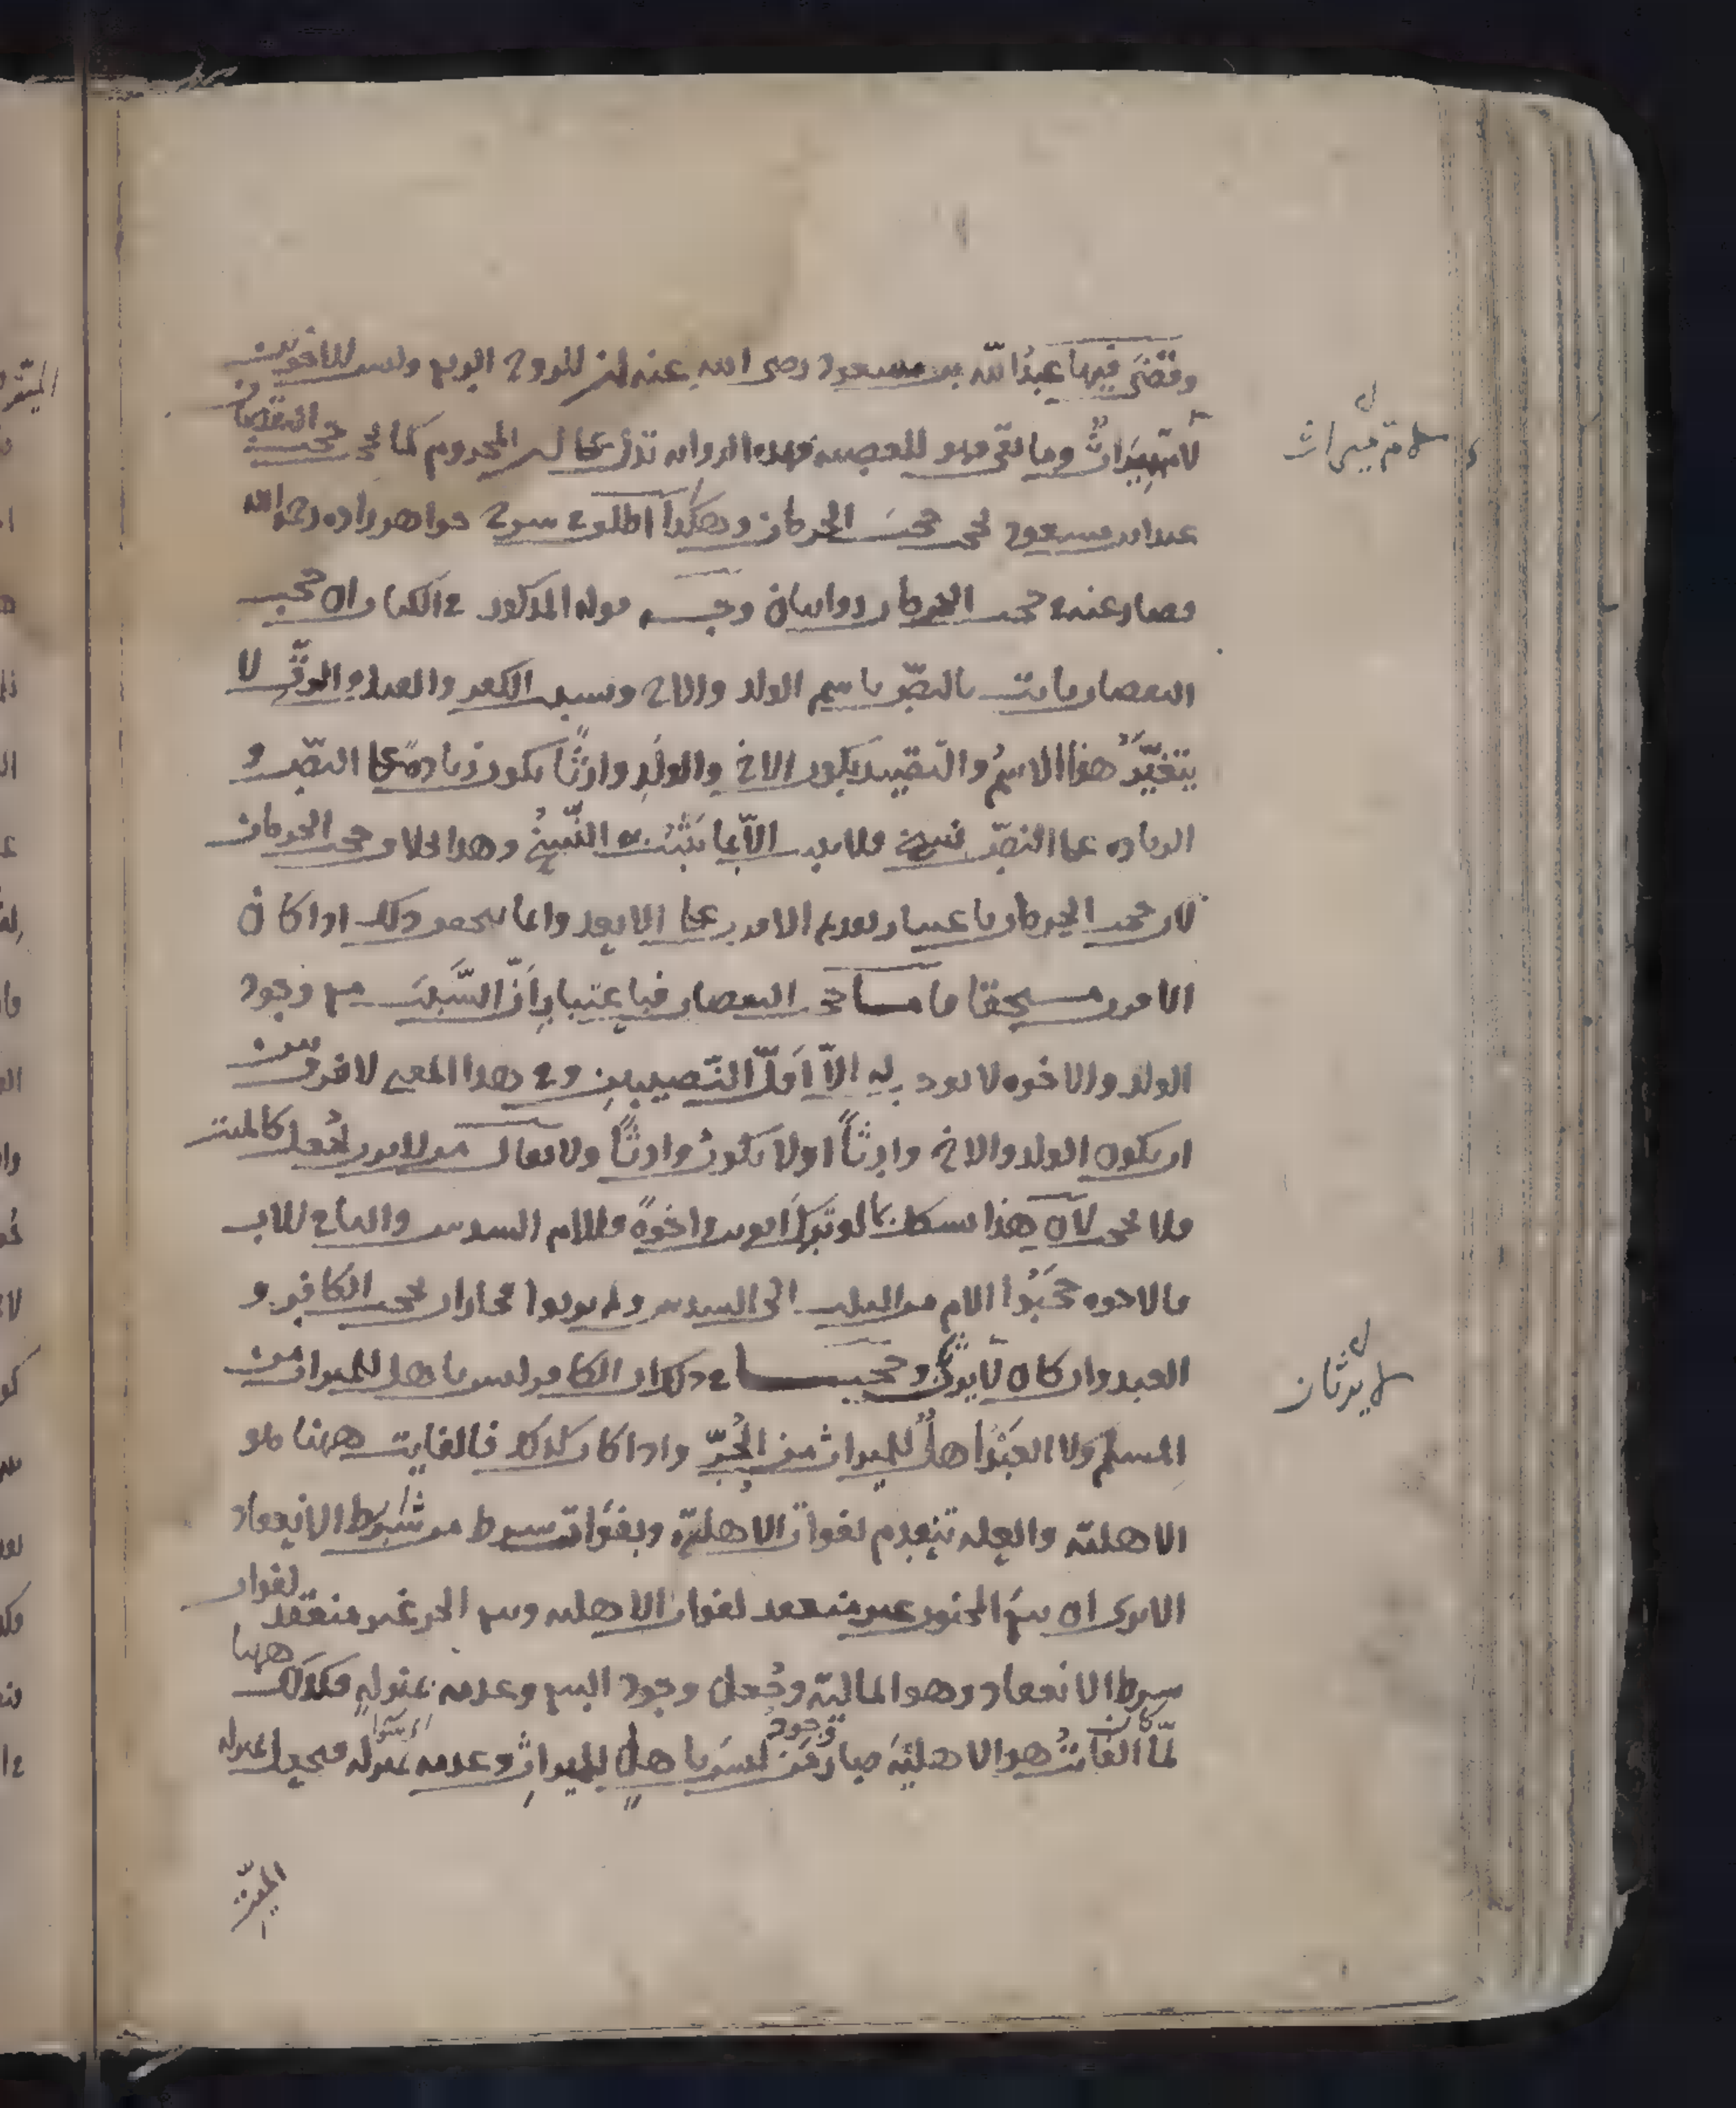 وقضى فيها عبد الله بن مسعود رضى الله عنه ان للزوج الربع وليس للاخوين
لام ميراث وما بقى فهو للعصبة فهذه الرواية تدل على ان المحروم كما يحجب حجب النقصان
عند ابن مسعود يحجب حجب الحرمان وهكذا اطلق شيخ خواهر زاده رحمه الله
فصار عنه فى حجب الحرمان روايتان وجه قوله المذكور فى الكتاب ان حجب
النقصان ثابت بالنص باسم الولد والاخ وبسبب الكفر والقتل والرق لا
يتغير هذا الاسم والتقييد بكون الاخ والولد وارثا يكون زيادة على النص و
الزيادة على النص نسخ فلا يثبت الا بما يثبت به النسخ وهذا بخلاف حجب الحرمان
لان حجب الحرمان باعتبار تقديم الاقرب على الابعد وانما يتحقق ذلك اذا كان
الاقرب مستحقا فاما حجب النقصان فباعتبار ان السبب مع وجود
الولد والاخوة لا يوجب له الا اقل النصيبين وفى هذا المعنى لا فرق بين
ان يكون الولد والاخ وارثا او لا يكون وارثا ولا يقال من لا يرث يجعل كالميت
فلا يحجب لان هذا يشكل بما لو ترك ابوين واخوة فللام السدس والباقى للاب
فالاخوة حجبوا الام من الثلث الى السدس ولم يرثوا فجاز ان يحجب الكافر و
العبد وان كان لا يرث وحجتنا فى ذلك ان الكافر ليس باهل للميراث من
المسلم ولا العبد اهل للميراث من الحر واذا كان كذلك فالفايت ههنا هو
الاهلية والعلة تنعدم لفوات الاهلية وبفوات شرط من شرط الانعقاد
الا يرى ان بيع المجنون غير منعقد لفوات الاهلية وبيع الحر غير منعقد لفوات
شرط الانعقاد وهو المالية وجعل وجود البيع وعدمه بمنزلة فكذلك ههنا
لما كان الفايت هو الاهلية صار وجود من ليس باهل للميراث وعدمه بمنزلة فيجعل بمنزلة
الميت
لام ميراث
لا يرثان